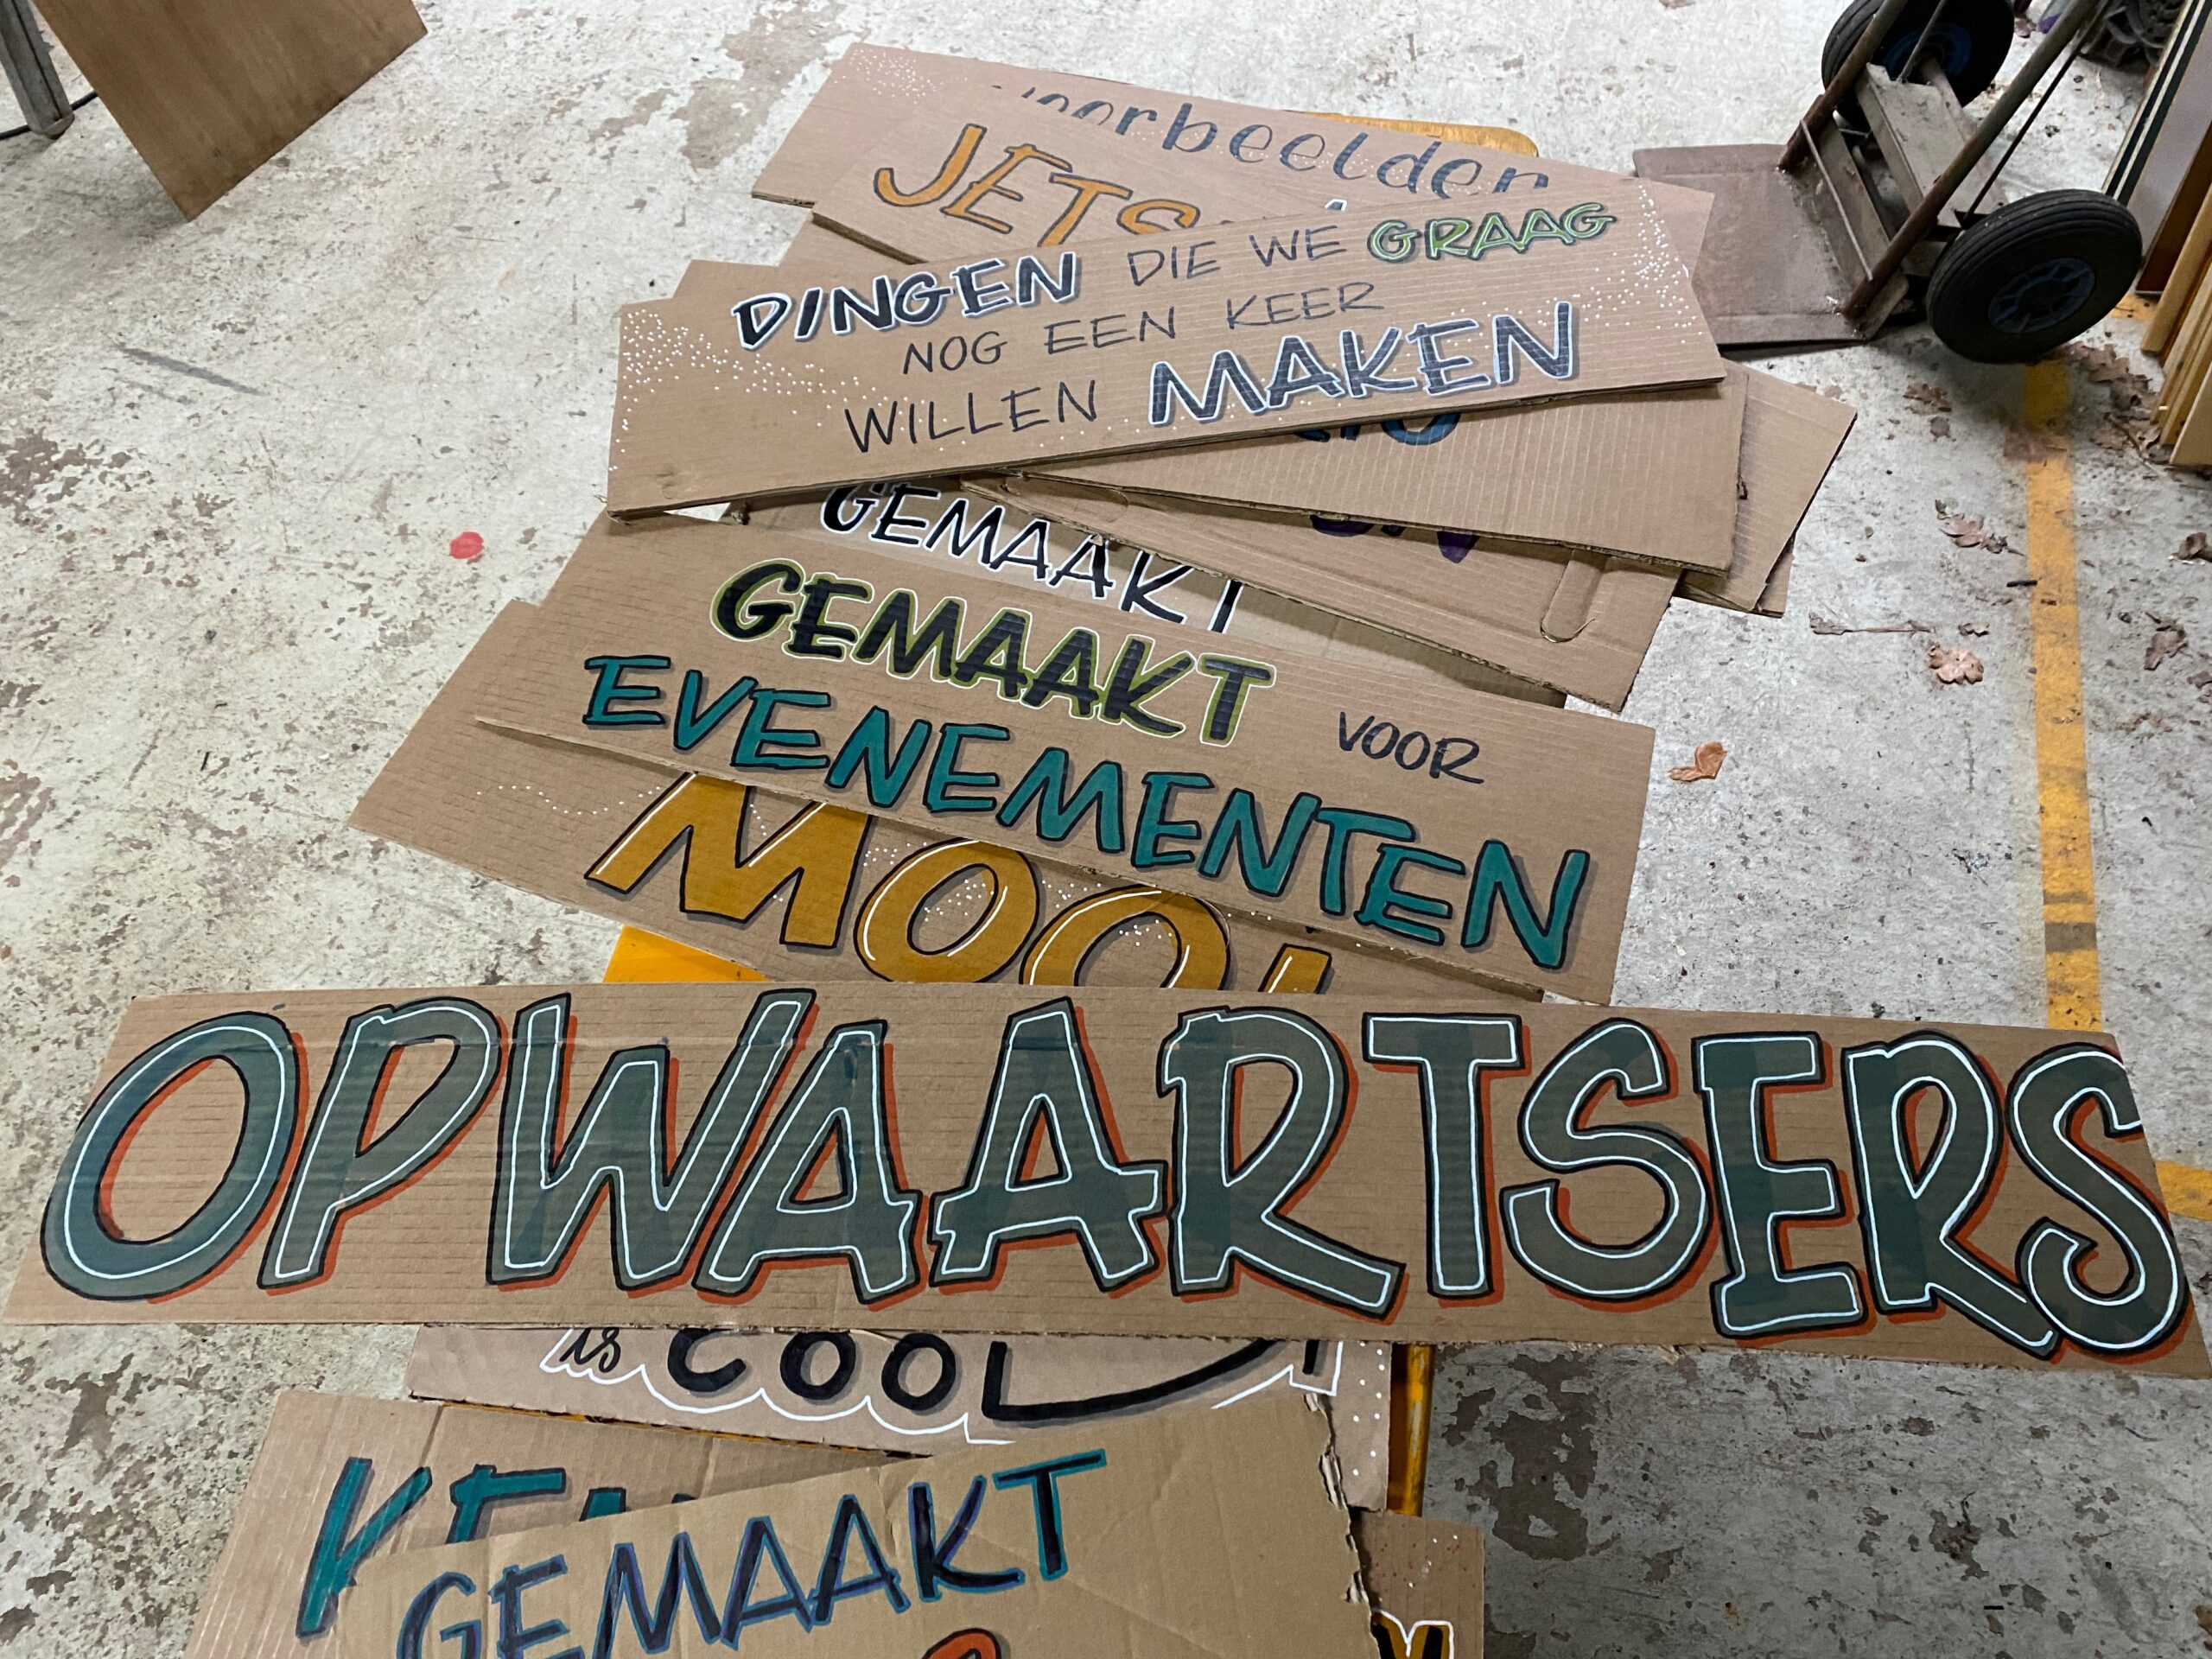 voorbeelden
JETS
DINGEN DIE WE GRAAG
NOG EEN KEER
WILLEN MAKEN
GEMAAKT
GEMAAKT VOOR
EVENEMENTEN
MOOI
OPWAARTSERS
is COOL
GEMAAKT